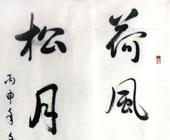 荷風
松月
丙申年